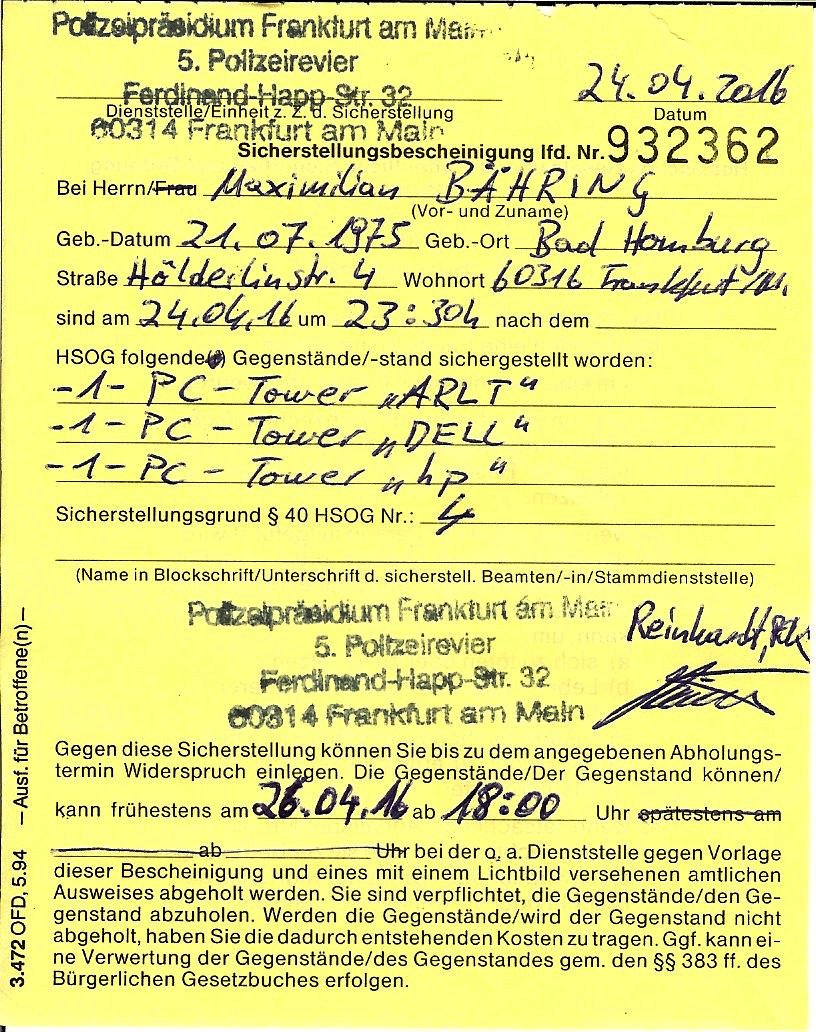 Polizeipräsidium Frankfurt am Main
5. Polizeirevier
Ferdinand-Happ-Str. 32
24.04.2016
Dienststelle/Einheit z. Z. d. Sicherstellung
Datum
60314 Frankfurt am Main
Sicherstellungsbescheinigung lfd. Nr. 932362
Bei Herrn/Frau Maximilian BÄHRING
(Vor- und Zuname)
Geb.-Datum 21.07.1975 Geb.-Ort Bad Homburg
Straße Hölderlinstr. 4 Wohnort 60316 Frankfurt/M.
sind am 24.04.16 um 23:30h nach dem
HSOG folgende(r) Gegenstände/-stand sichergestellt worden:
-1- PC-Tower „ARLT"
-1- PC-Tower „DELL"
-1- PC-Tower „hp"
Sicherstellungsgrund § 40 HSOG Nr.: 4
(Name in Blockschrift/Unterschrift d. sicherstell. Beamten/-in/Stammdienststelle)
Polizeipräsidium Frankfurt am Main
Reinhardt, PK
5. Polizeirevier
Ferdinand-Happ-Str. 32
60314 Frankfurt am Main
Gegen diese Sicherstellung können Sie bis zu dem angegebenen Abholungs-
termin Widerspruch einlegen. Die Gegenstände/Der Gegenstand können/
kann frühestens am 26.04.16 ab 18:00 Uhr spätestens am
ab Uhr bei der o. a. Dienststelle gegen Vorlage
dieser Bescheinigung und eines mit einem Lichtbild versehenen amtlichen
Ausweises abgeholt werden. Sie sind verpflichtet, die Gegenstände/den Ge-
genstand abzuholen. Werden die Gegenstände/wird der Gegenstand nicht
abgeholt, haben Sie die dadurch entstehenden Kosten zu tragen. Ggf. kann ei-
ne Verwertung der Gegenstände/des Gegenstandes gem. den §§ 383 ff. des
Bürgerlichen Gesetzbuches erfolgen.
3.472 OFD, 5.94 – Ausf. für Betroffene(n) –